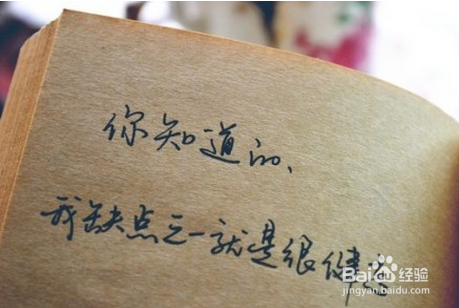 你知道的、
我缺点之一就是很健忘
Baidu 经验
jingyan.baidu.com